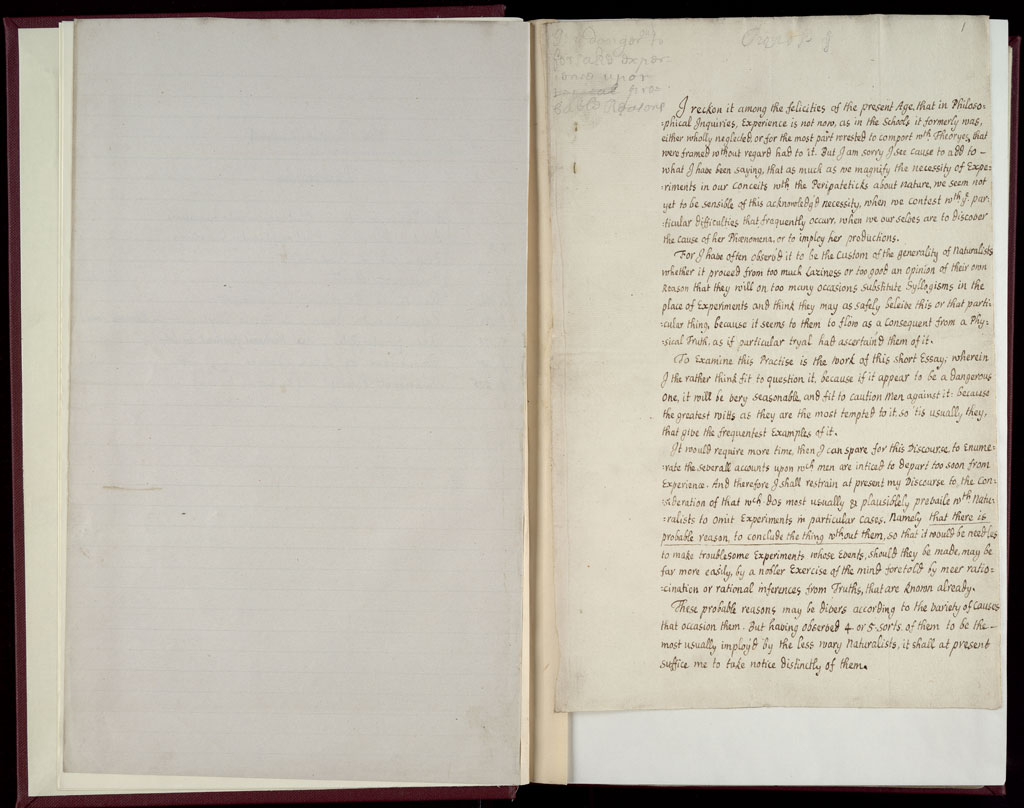 1
I reckon it among the felicities of the present Age, that in Philoso-
:phical Inquiries, Experience is not now, as in the Schools it formerly was,
either wholly neglected, or for the most part wrested to comport wth Theoryes, that
were framed wthout regard had to it. But I am sorry I see cause to add to –
what I have been saying, that as much as we magnify the necessity of Expe=
:riments in our Conceits wth the Peripateticks about Nature, we seem not
yet to be sensible of this acknowledg'd necessity, when we contest wth ye par:
:ticular difficulties that frequently occurr, when we our selves are to discover
the cause of her Phænomena, or to imploy her productions.
For I have often observ'd it to be the Custom of the generality of Naturalists
whether it proceed from too much Laziness or too good an opinion of their own
Reason that they will on too many occasions substitute Syllogisms in the
place of Experiments and think they may as safely beleive this or that parti:
:cular thing, because it seems to them to flow as a Consequent from a Phy:
:sical Truth, as if particular tryal had ascertain'd them of it.
To Examine this Practise is the work of this short Essay; wherein
I the rather think fit to question it, because if it appear to be a dangerous
one, it will be very seasonable, and fit to caution men against it: because
the greatest witts as they are the most tempted to it, so 'tis usually they,
that give the frequentest Examples of it.
It would require more time, then I can spare for this Discourse, to Enume=
:rate the severall accounts upon wch men are inticed to depart too soon from
Experience. And therefore I shall restrain at present my Discourse to the Con
:sideration of that wch dos most usually & plausiblely prevaile wth Natu:
:ralists to omit Experiments in particular cases. Namely that there is
probable reason, to conclude the thing wthout them, so that it would be needles
to make troublesome Experiments, whose Events, should they be made, may be
far more easily, by a nobler Exercise of the mind foretold by meer ratio=
:cination or rational inferences from Truths, that are known already.
These probable reasons may be divers according to the variety of causes
that occasion them. But having observed 4 or 5 sorts of them to be the –
most usually imploy'd by the less wary Naturalists, it shall at present
suffice me to take notice distinctly of them.
danger to
forsake exper:
ience upon
Reasons